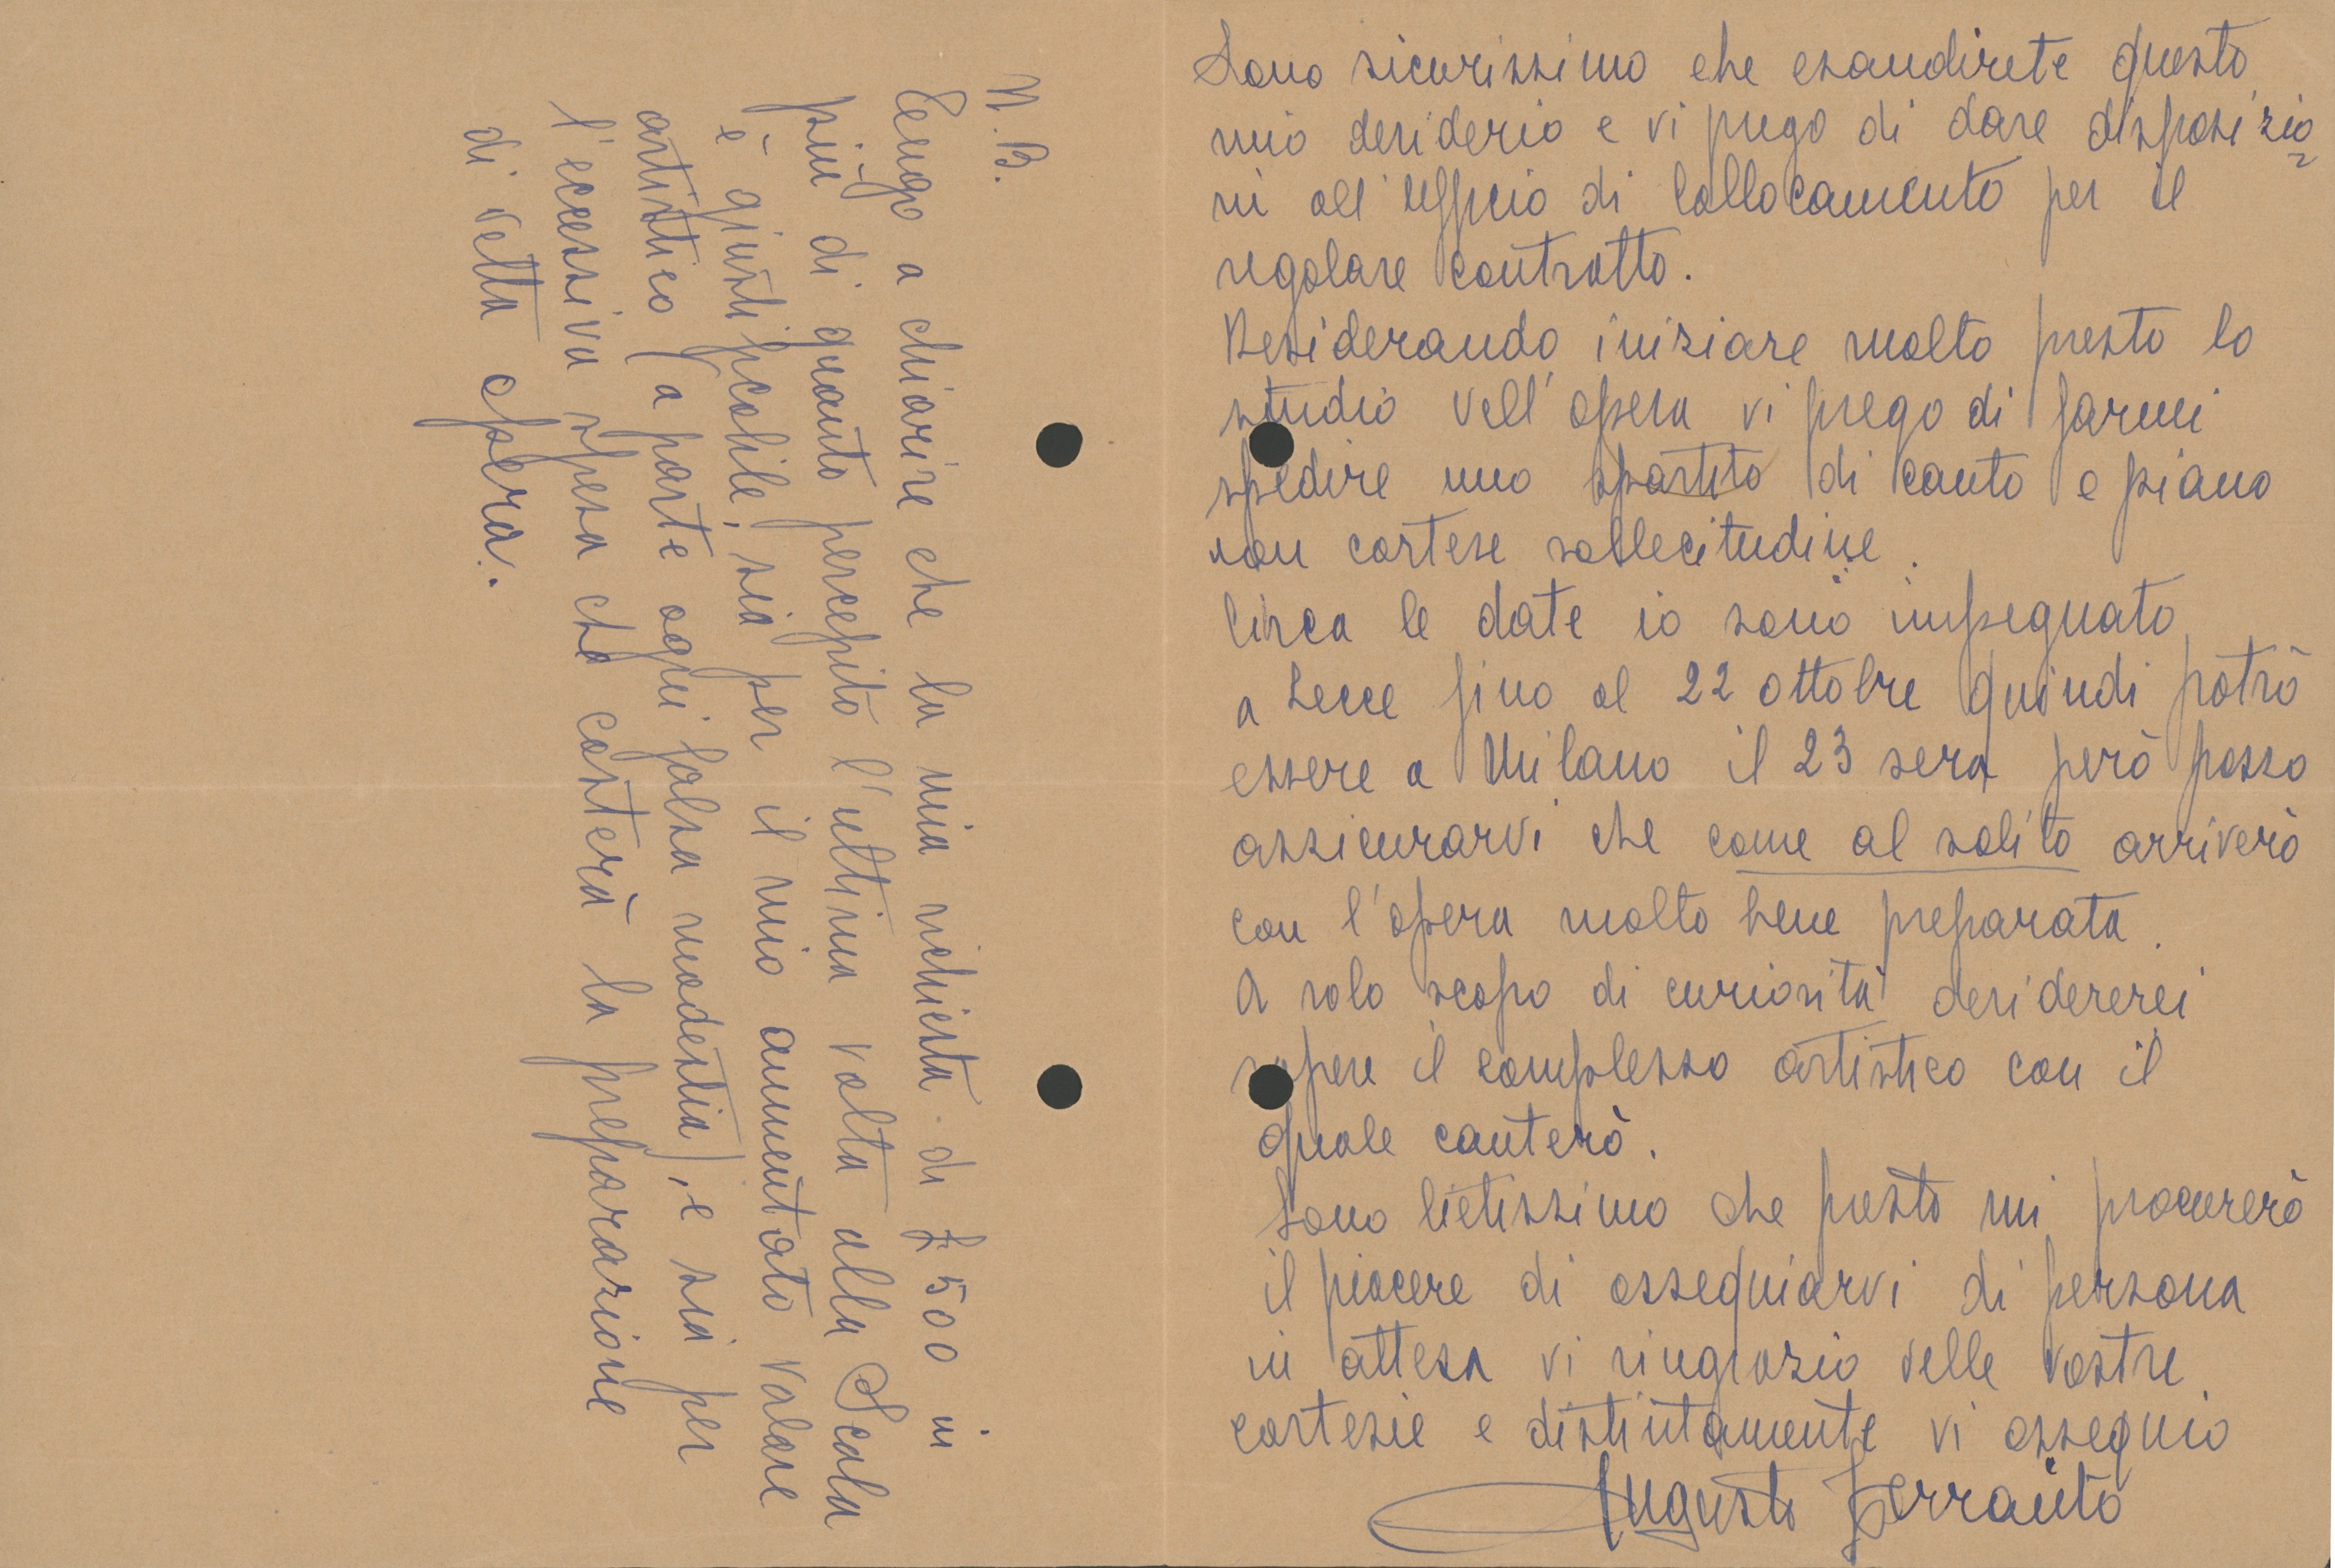 Sono sicurissimo che esaudirete questo
mio desiderio e vi prego di dare disposizio=
ni all'Ufficio di Collocamento per il
regolare contratto.
Desiderando iniziare molto presto lo
studio dell'opera vi prego di farmi
spedire uno spartito di canto e piano
con cortese sollecitudine.
Circa le date io sono impegnato
a Lecce fino al 22 ottobre quindi potrò
essere a Milano il 23 sera però posso
assicurarvi che come al solito arriverò
con l'opera molto bene preparata.
A solo scopo di curiosità desidererei
sapere il complesso artistico con il
quale canterò.
Sono lietissimo che presto mi procurerò
il piacere di ossequiarvi di persona
in attesa vi ringrazio delle vostre
cortesie e distintamente vi ossequio
Augusto Ferrauto
N.B.
Tengo a chiarire che la mia richiesta di £ 500 in
più di quanto percepito l'ultima volta alla Scala
è giustificabile, sia per il mio aumentato valore
artistico (a parte ogni falsa modestia), e sia per
l'eccessiva spesa che costerà la preparazione
di detta opera.